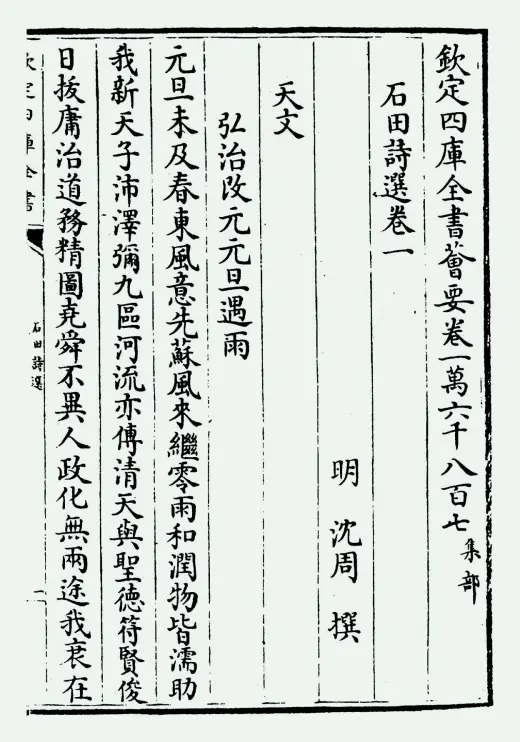 欽定四庫全書薈要卷一萬六千八百七 集部
石田詩選卷一
明 沈周 撰
天文
弘治改元元旦遇雨
元旦未及春東風意先蘇風來繼零雨和潤物皆濡助
我新天子沛澤彌九區河流亦傳清天與聖德符賢俊
日拔庸治道務精圖堯舜不異人政化無兩途我衰在
欽定四庫全書
石田詩選